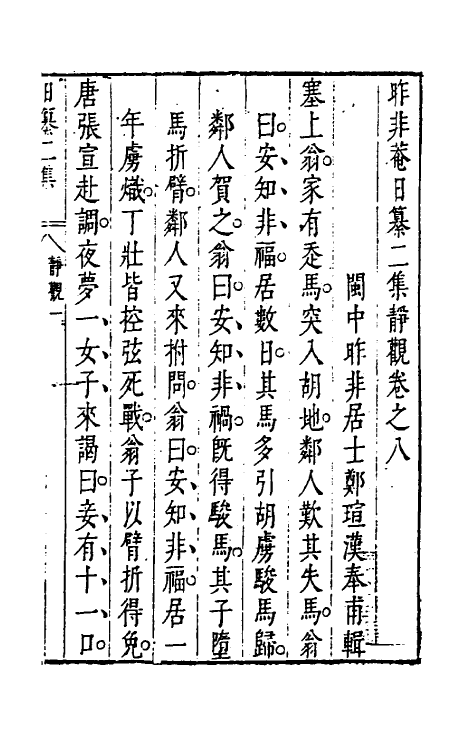 昨非菴日纂二集靜觀卷之八
閩中昨非居士鄭瑄漢奉甫輯
塞上翁家有忞馬突入胡地鄰人歎其失馬翁
曰安知非福居數日其馬多引胡虜駿馬歸
鄰人賀之翁曰安知非禍既得駿馬其子墮
馬折臂鄰人又來拊問翁曰安知非福居一
年虜熾丁壯皆控弦死戰翁子以臂折得免
唐張宣赴調夜夢一女子來謁曰妾有十一口
日纂二集
八
靜觀
一